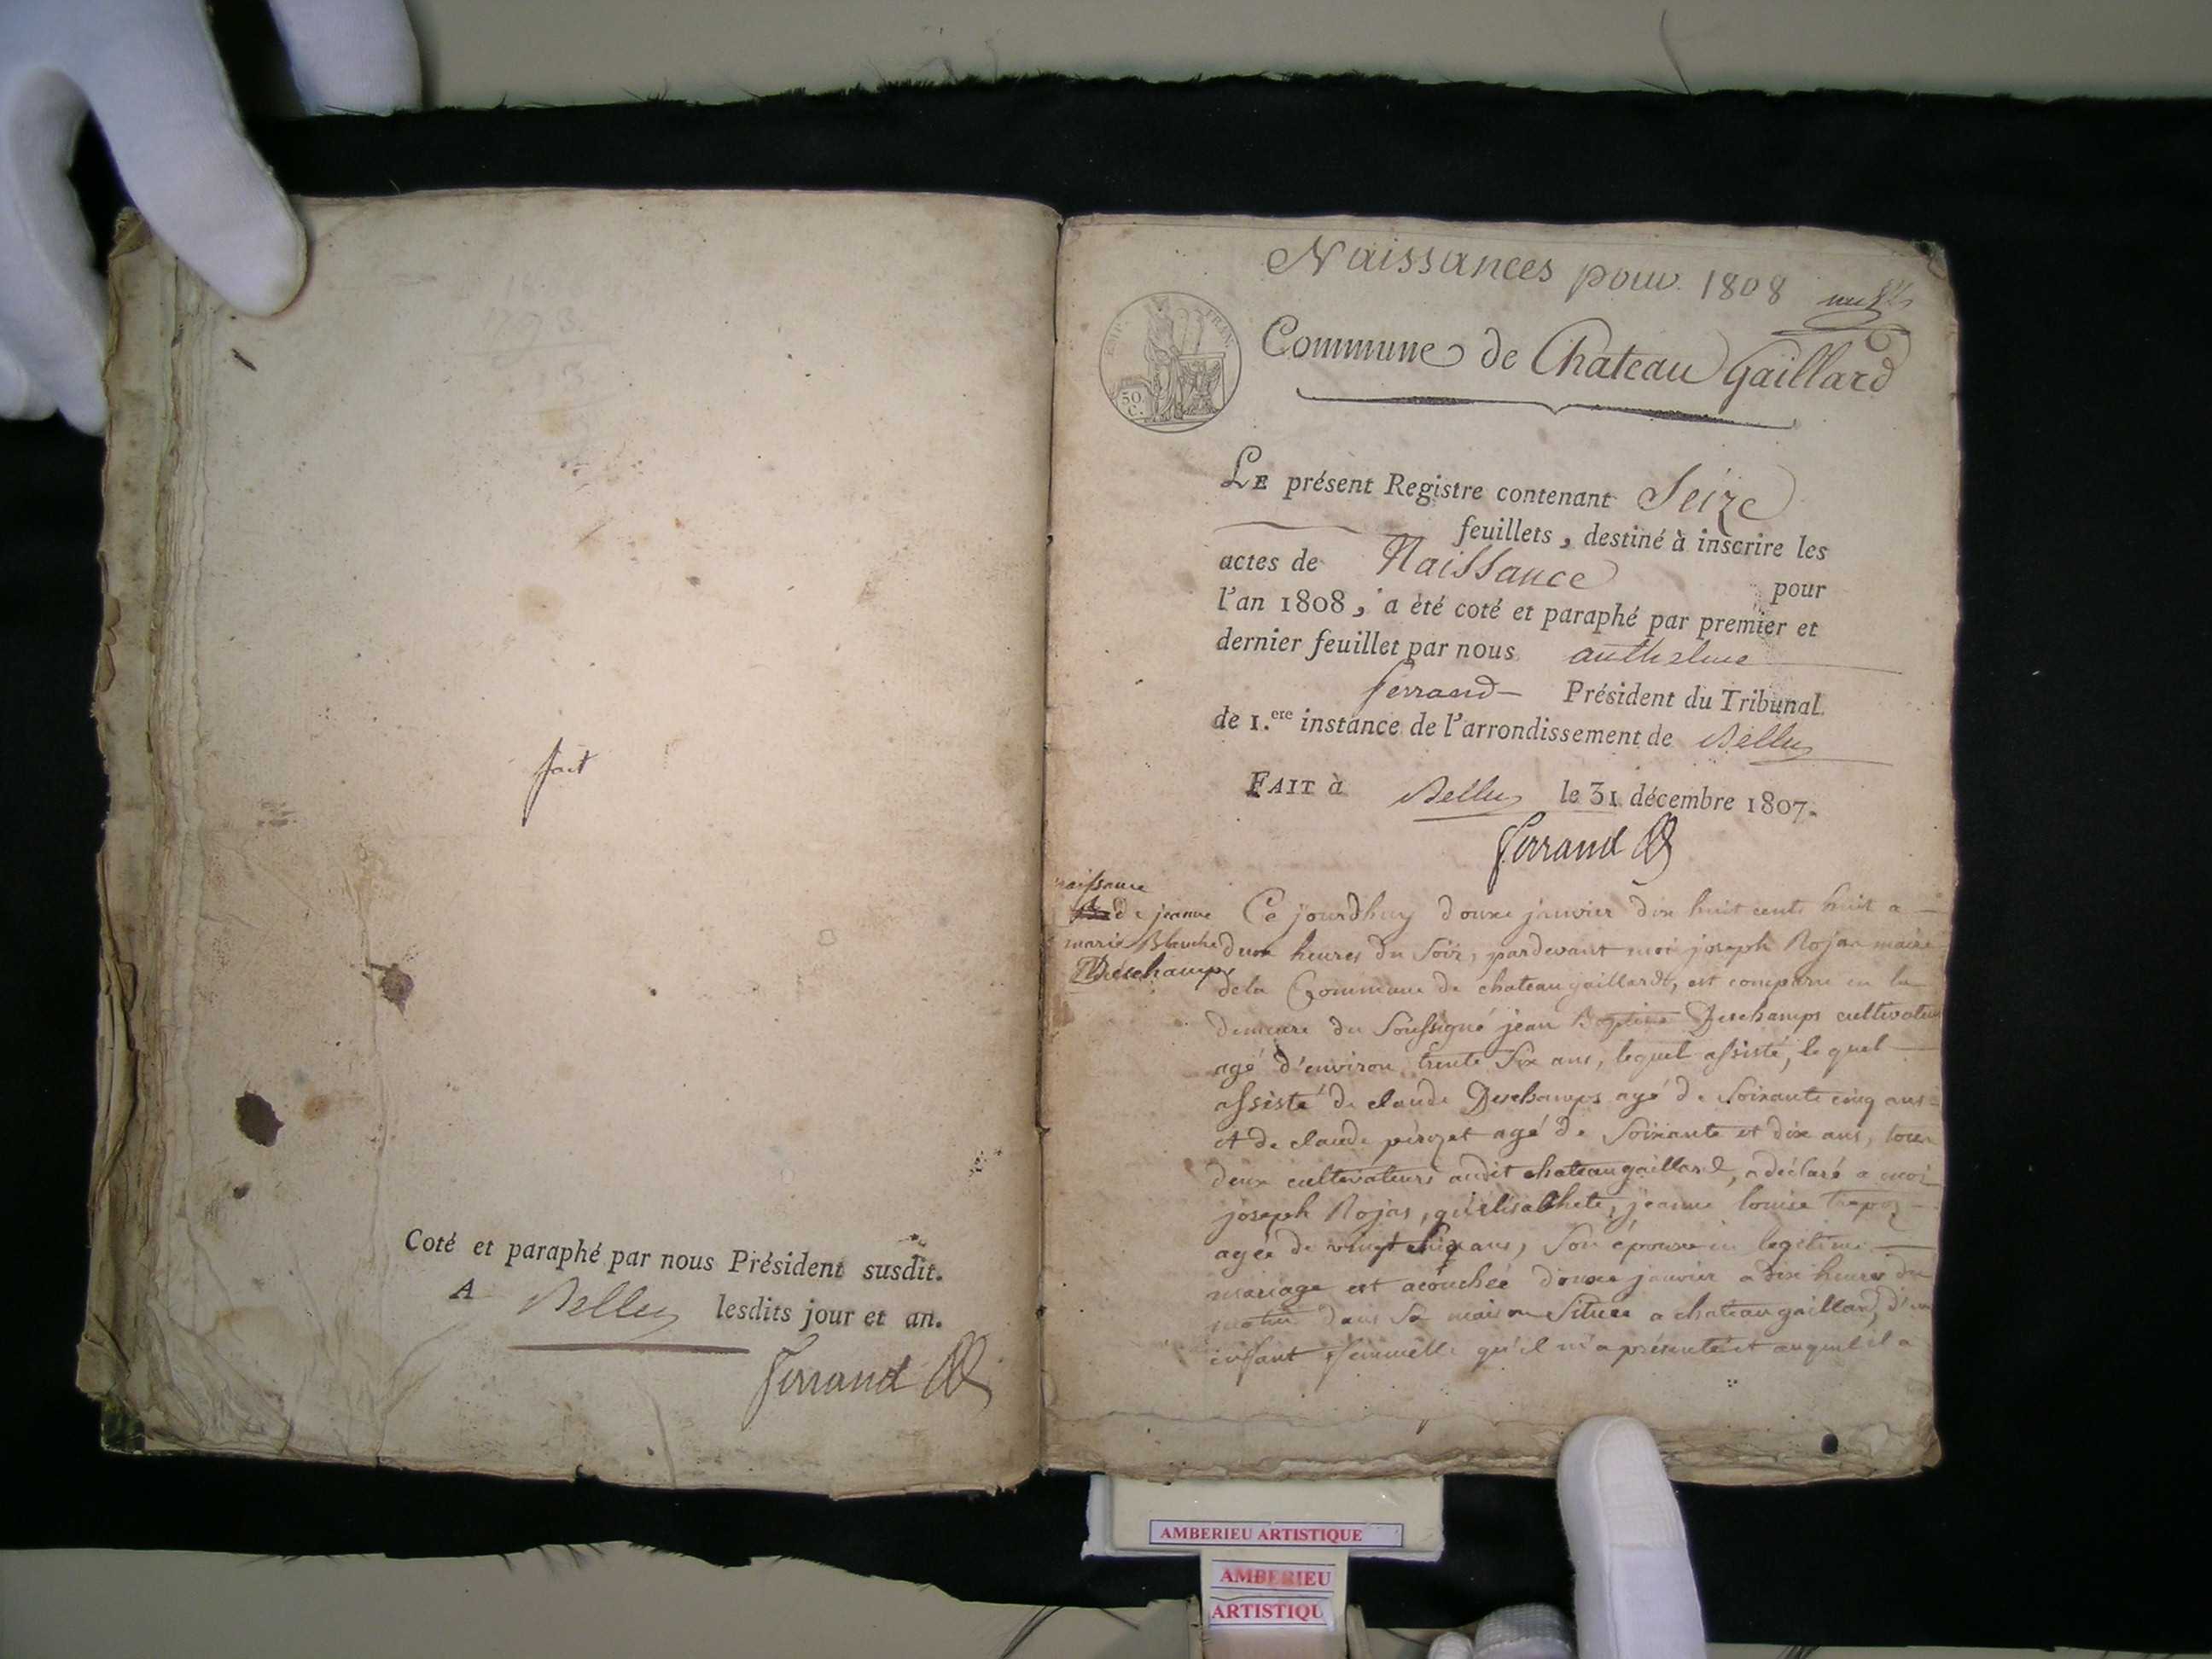 fait
Coté et paraphé par nous Président susdit.
A Belley lesdits jour et an.
Ferrand
Naissances pour 1808
Commune de Chateau Gaillard
EMP. FRAN.
50 C.
LE présent Registre contenant Seize
feuillets, destiné à inscrire les
actes de Naissance pour
l'an 1808, a été coté et paraphé par premier et
dernier feuillet par nous anthelme
ferrand Président du Tribunal
de 1.ere instance de l'arrondissement de Belley
FAIT à Belley le 31 décembre 1807.
Ferrand
naissance
de jeanne
marie Blanche
Deschamps
Ce jourdhuy douze janvier dix huit cents huit a
deux heures du Soir, pardevant moi joseph Rojas maire
dela Commune de chateaugaillard, est comparu en la
demeure du Soussigné jean Baptiste Deschamps cultivateur
agé d'environ trente Six ans, lequel assisté, lequel
assisté de claude Deschamps agé de Soixante cinq ans
et de claude agé de Soixante et dix ans, tous
deux cultivateurs audit chateaugaillard, a déclaré a moi
joseph Rojas, qu'élisabhete, jeanne louise trapoz
agée de vingt ans, Son épouse en legitime
mariage est acouchée douze janvier a dix heures du
matin dans Sa maison Situee a chateaugaillard, d'un
enfant femmelle qu'il m'a présenté et auquel il a
AMBERIEU ARTISTIQUE
AMBERIEU
ARTISTIQU